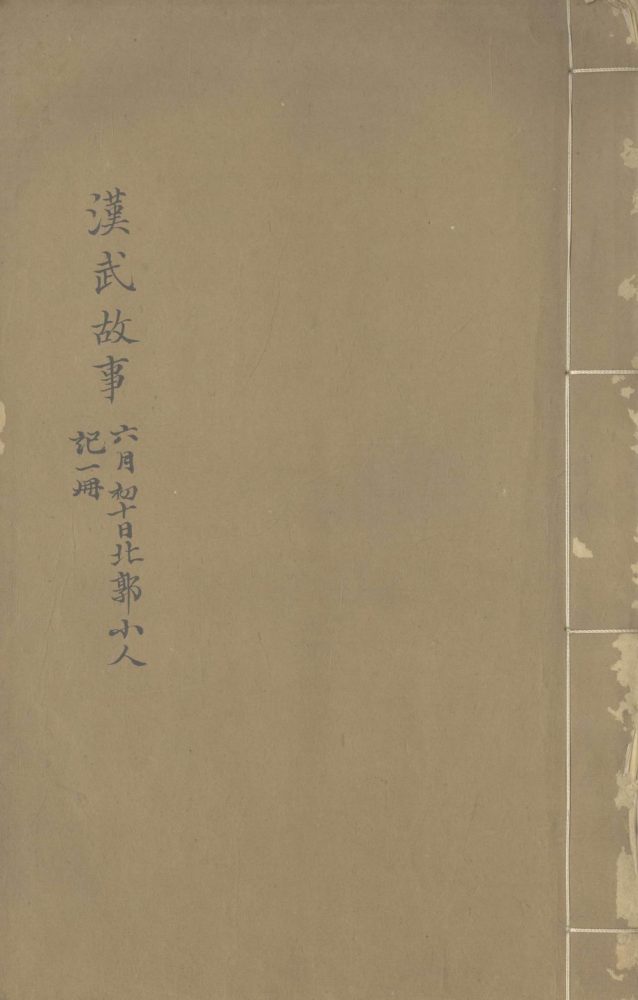 漢武故事
六月初十日北郭小人
記一冊